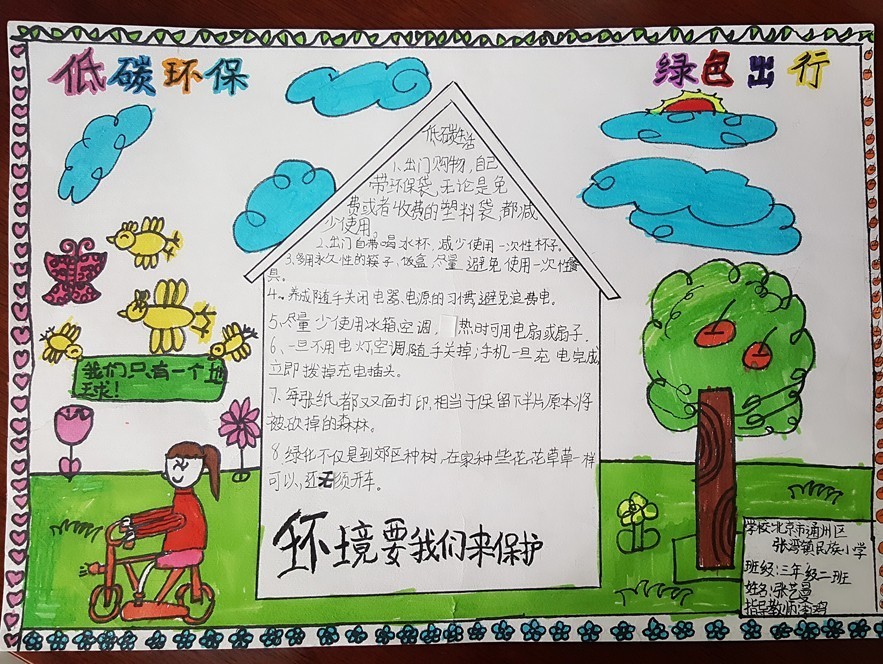 低碳环保
绿色出行
低碳生活
1、出门购物,自己
带环保袋,无论是免
费或者收费的塑料袋,都减
少使用。
2、出门自带喝水杯,减少使用一次性杯子。
3、多用永久性的筷子、饭盒,尽量避免使用一次性餐
具。
4、养成随手关闭电器、电源的习惯,避免浪费电。
5、尽量少使用冰箱空调,热时可用电扇或扇子.
6、一旦不用电灯,空调,随手关掉;手机一旦充电完成,
立即拨掉充电插头。
7、每张纸都双面打印,相当于保留下半片原本将
被砍掉的森林。
8、绿化不仅是到郊区种树,在家种些花花草草一样
可以,还无须开车。
环境要我们来保护
我们只有一个地
球!
学校:北京市通州区
张湾镇民族小学
班级:三年级二班
姓名:张艺曼
指导教师: